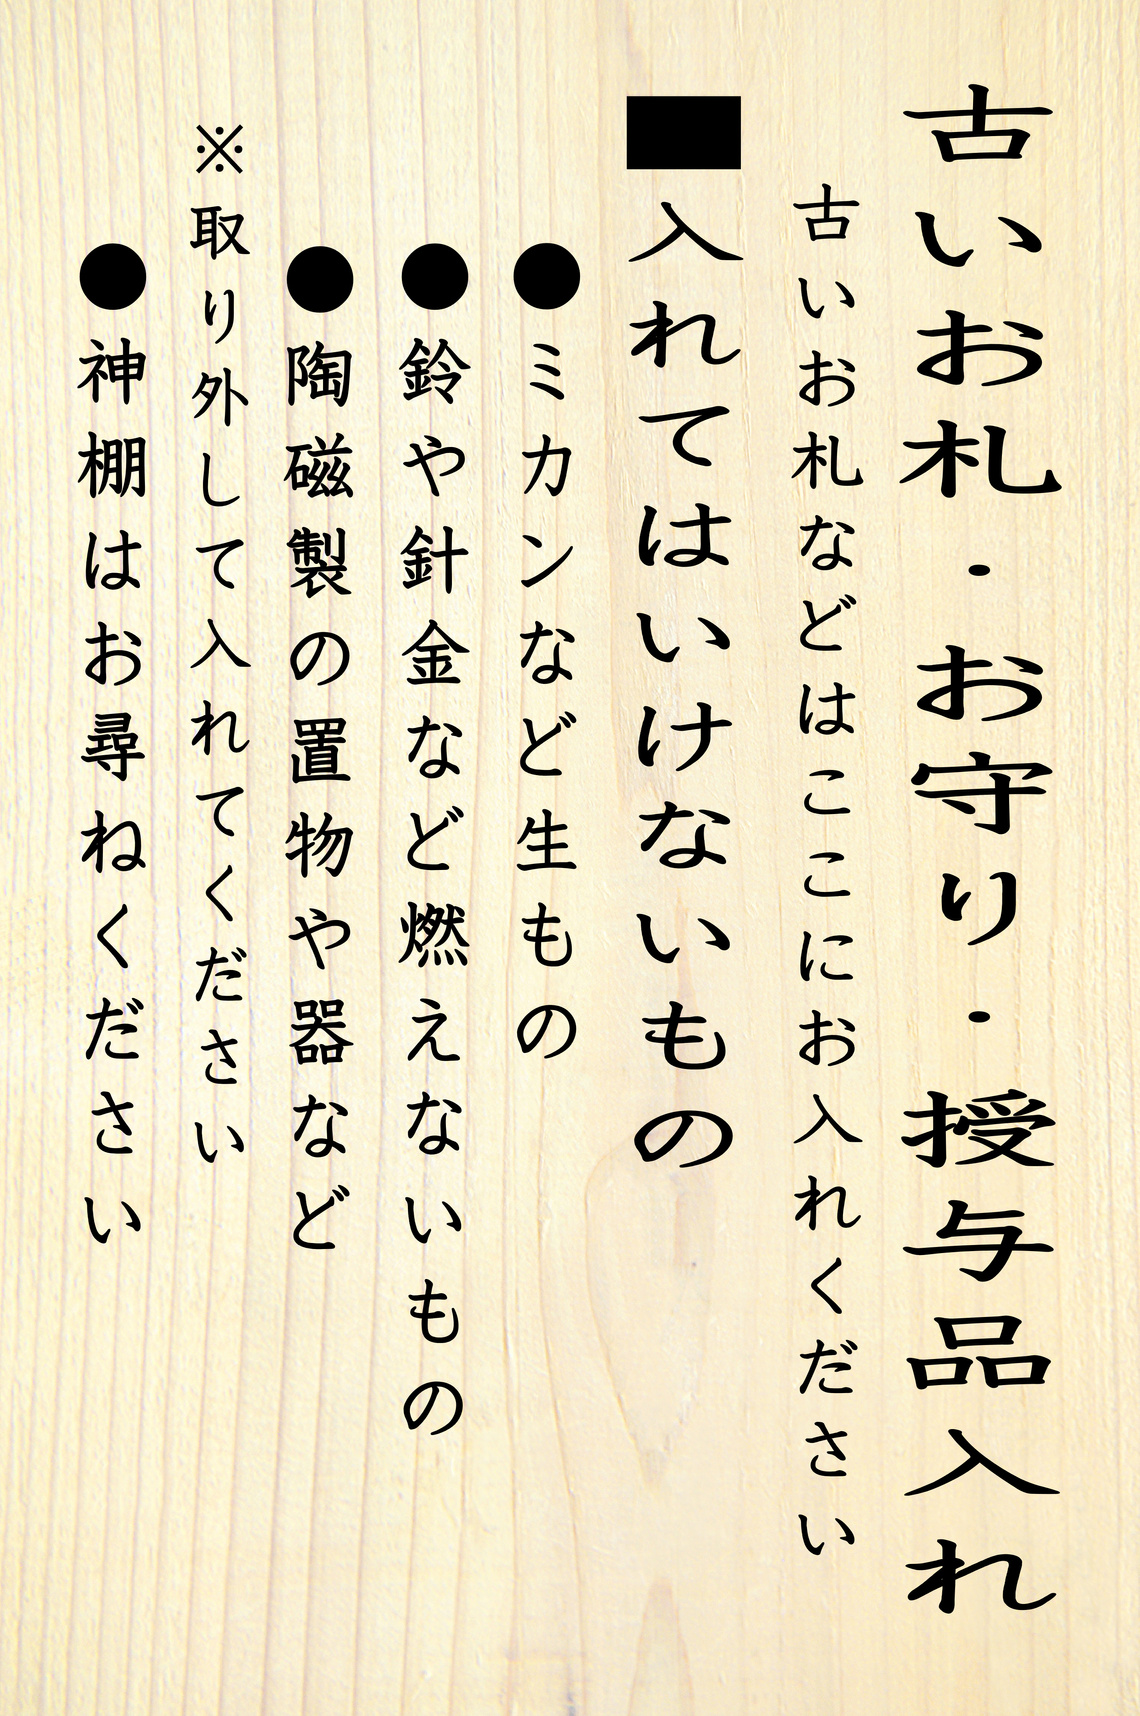 古いお札・お守り・授与品入れ
古いお札などはここにお入れください
■入れてはいけないもの
●ミカンなど生もの
●鈴や針金など燃えないもの
●陶磁製の置物や器など
※取り外して入れてください
●神棚はお尋ねください